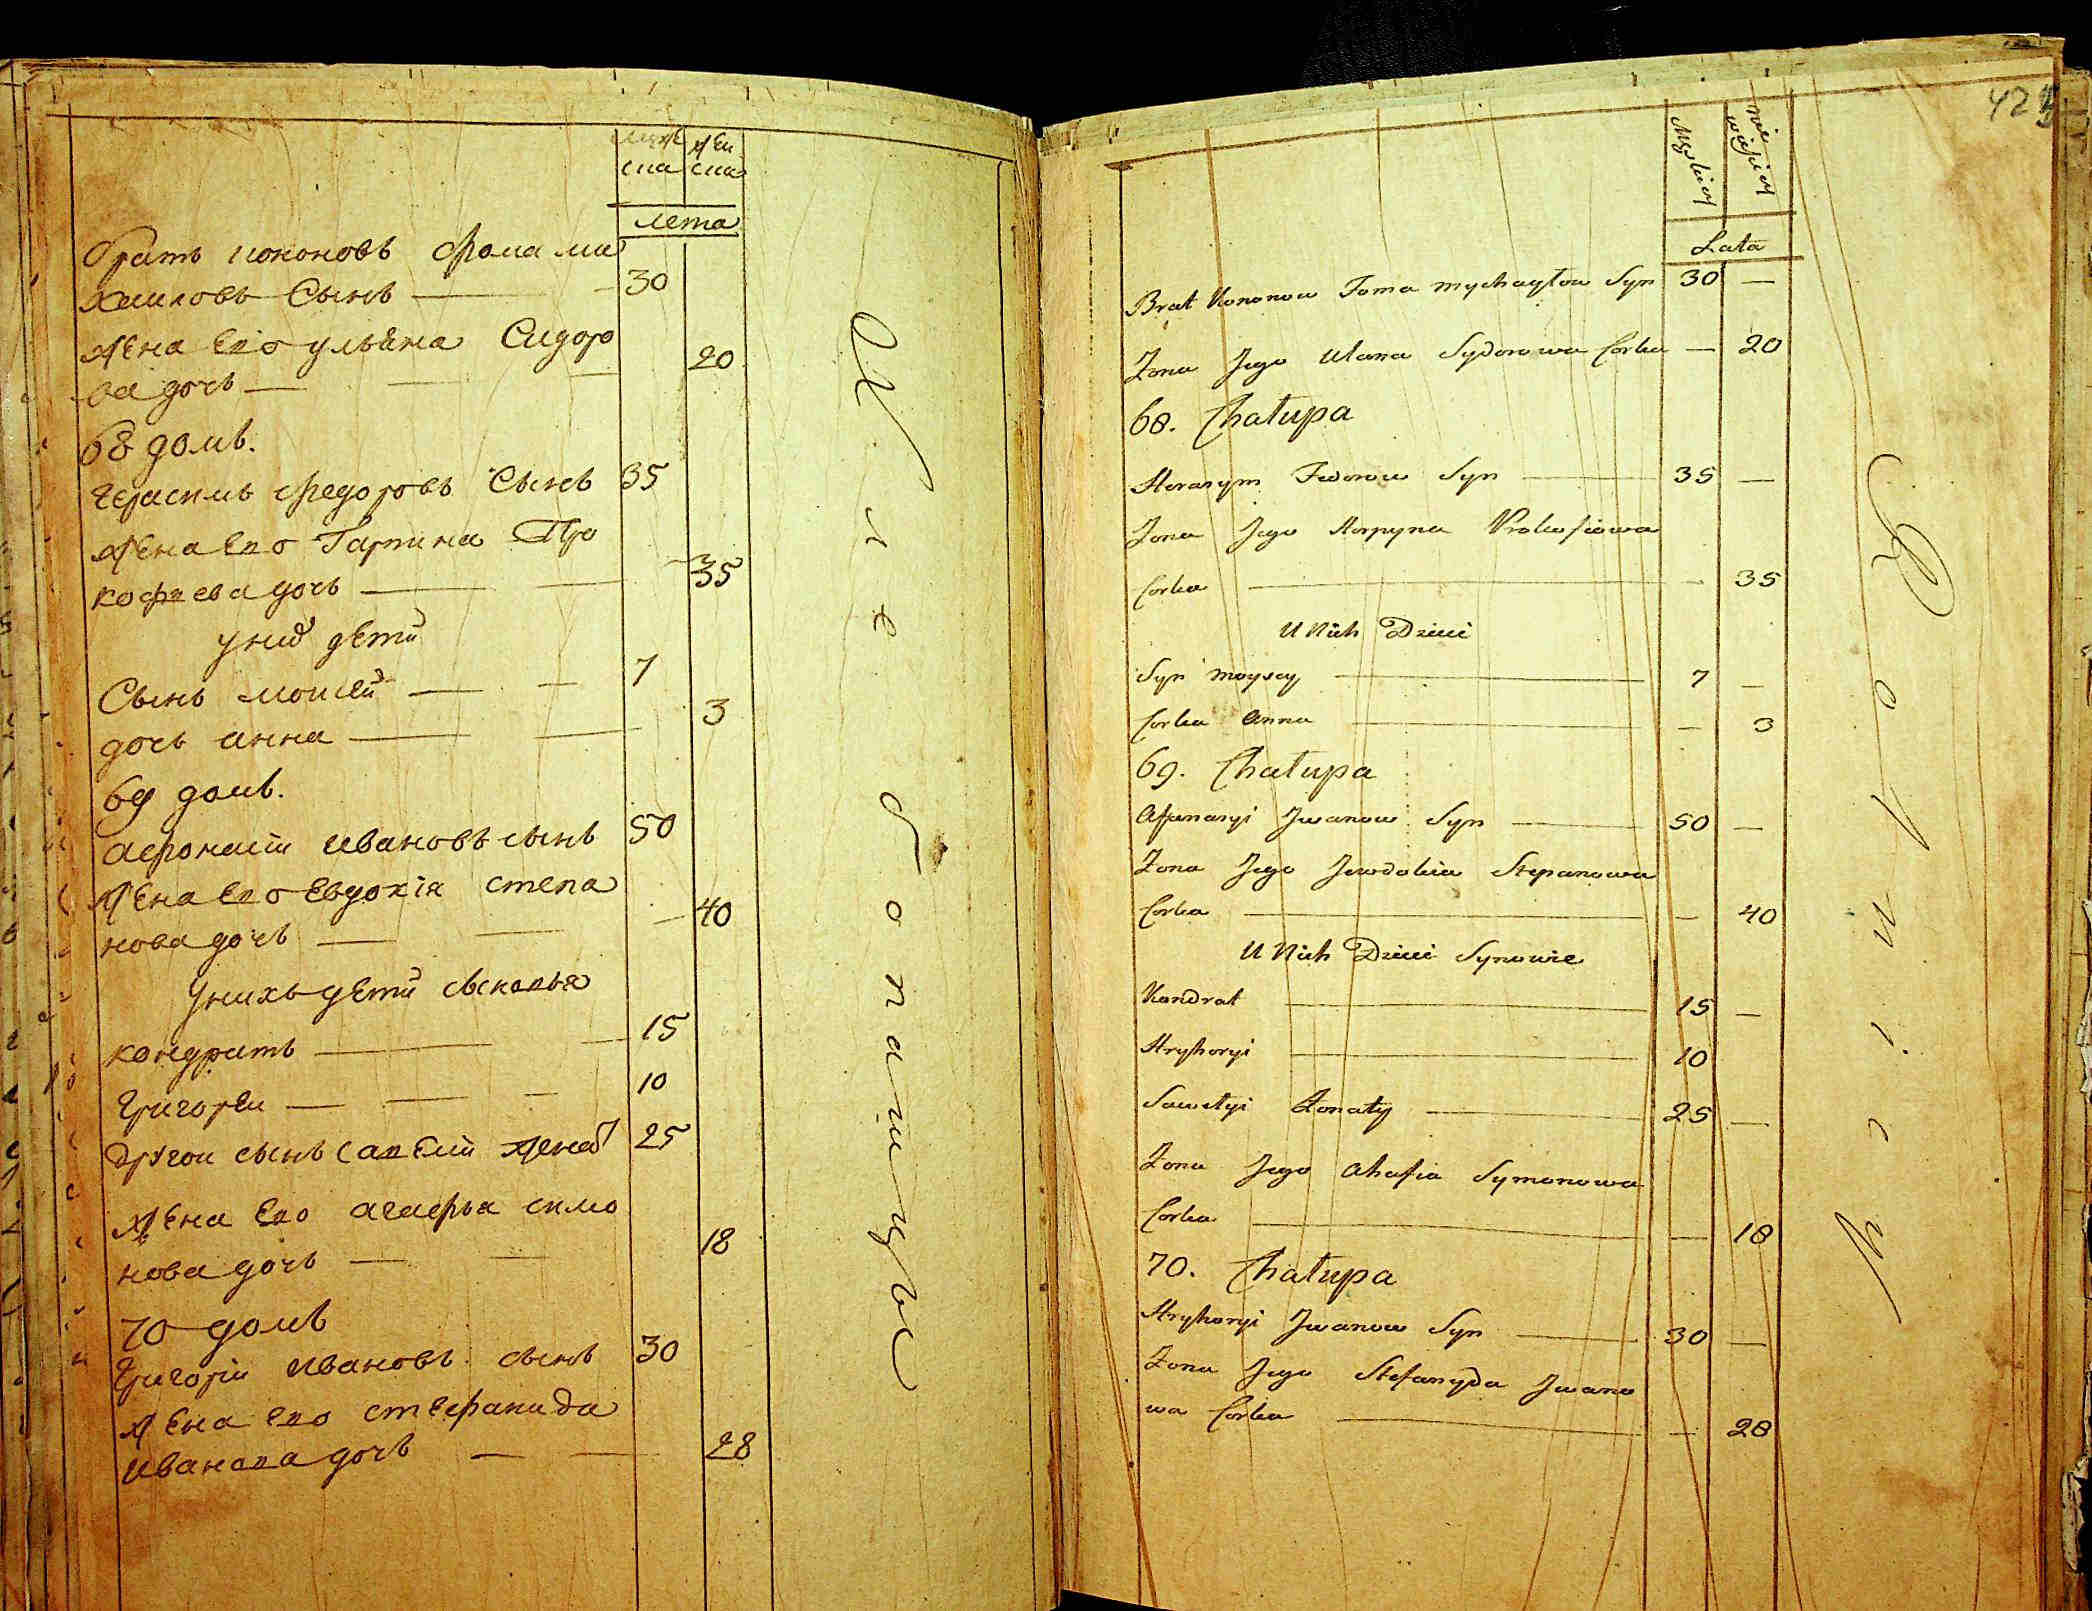 муже
ска
жен
ска
лета
братъ кононовъ фома ми
хаиловъ Сынъ — 30
жена Его ульяна Сидоро
ва дочь — 20
68 домъ.
герасимъ федоровъ Сынъ 35
жена Его Гарпина Про
кофиева дочь — 35
уних дети
Сынъ моисей — 7
дочь анна — 3
69 домъ.
афонасии ивановъ сынъ 50
жена Его Евдокія степа
нова дочь — 40
унихъ дети сыновья
кондратъ — 15
григореи — 10
другои сынъ савели женат 25
жена Его агафья симо
нова дочь — 18
70 домъ
григории ивановъ сынъ 30
жена Его стефанида
иванова дочь — 28
Хлебопашцы
425
Męzkiey
nie
wieściey
Lata
Brat Kononow Foma Mychayłow Syn 30 —
Zona Jego Ulana Sydorowa Corka — 20
68. Chałupa
Harasym Fedorow Syn — 35 —
Zona Jego Harpyna Prokofiowa
Corka — — 35
U Nich Dzieci
Syn Moysey — 7 —
Corka Anna — — 3
69. Chałupa
Afanasyi Jwanow Syn — 50 —
Zona Jego Jewdokia Stepanowa
Corka — — 40
U Nich Dzieci Synowie
Kondrat — 15 —
Hryhoryi — 10
Sawełyi Zonaty — 25 —
Zona Jego Ahafia Symonowa
Corka — — 18
70. Chałupa
Hryhoryi Jwanow Syn — 30 —
Zona Jego Stefanyda Jwano
wa Corka — — 28
Rolnicy